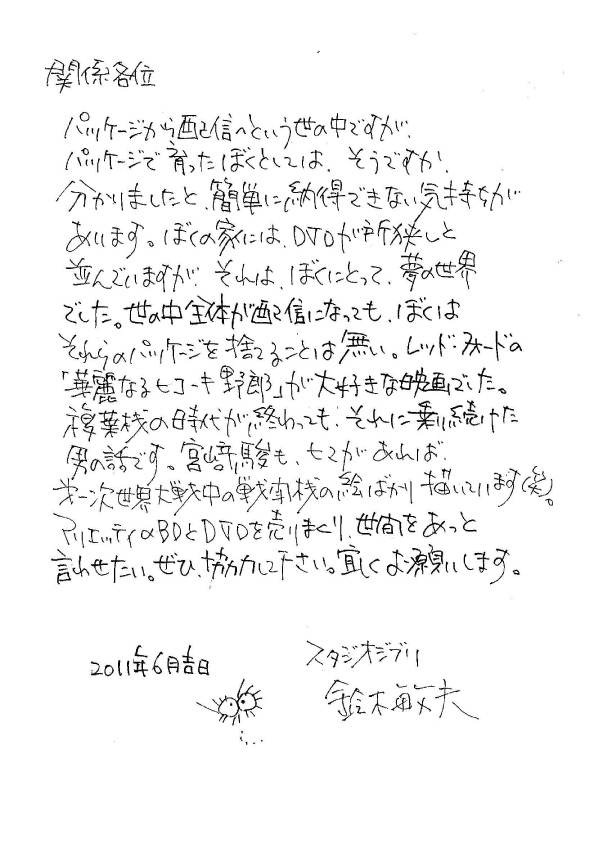 関係各位
パッケージから配信へという世の中ですが、
パッケージで育ったぼくとしては、そうですか、
分かりましたと、簡単に納得できない気持ちが
あります。ぼくの家には、DVDが所狭しと
並んでいますが、それは、ぼくにとって、夢の世界
でした。世の中全体が配信になっても、ぼくは
それらのパッケージを捨てることは無い。レッド・フォードの
「華麗なるヒコーキ野郎」が大好きな映画でした。
複葉機の時代が終わっても、それに乗り続けた
男の話です。宮﨑駿も、ヒマがあれば、
第一次世界大戦中の戦闘機の絵ばかり描いています(笑)。
アリエッティのBDとDVDを売りまくり、世間をあっと
言わせたい。ぜひ、協力して下さい。宜しくお願いします。
2011年6月吉日
スタジオジブリ
鈴木敏夫